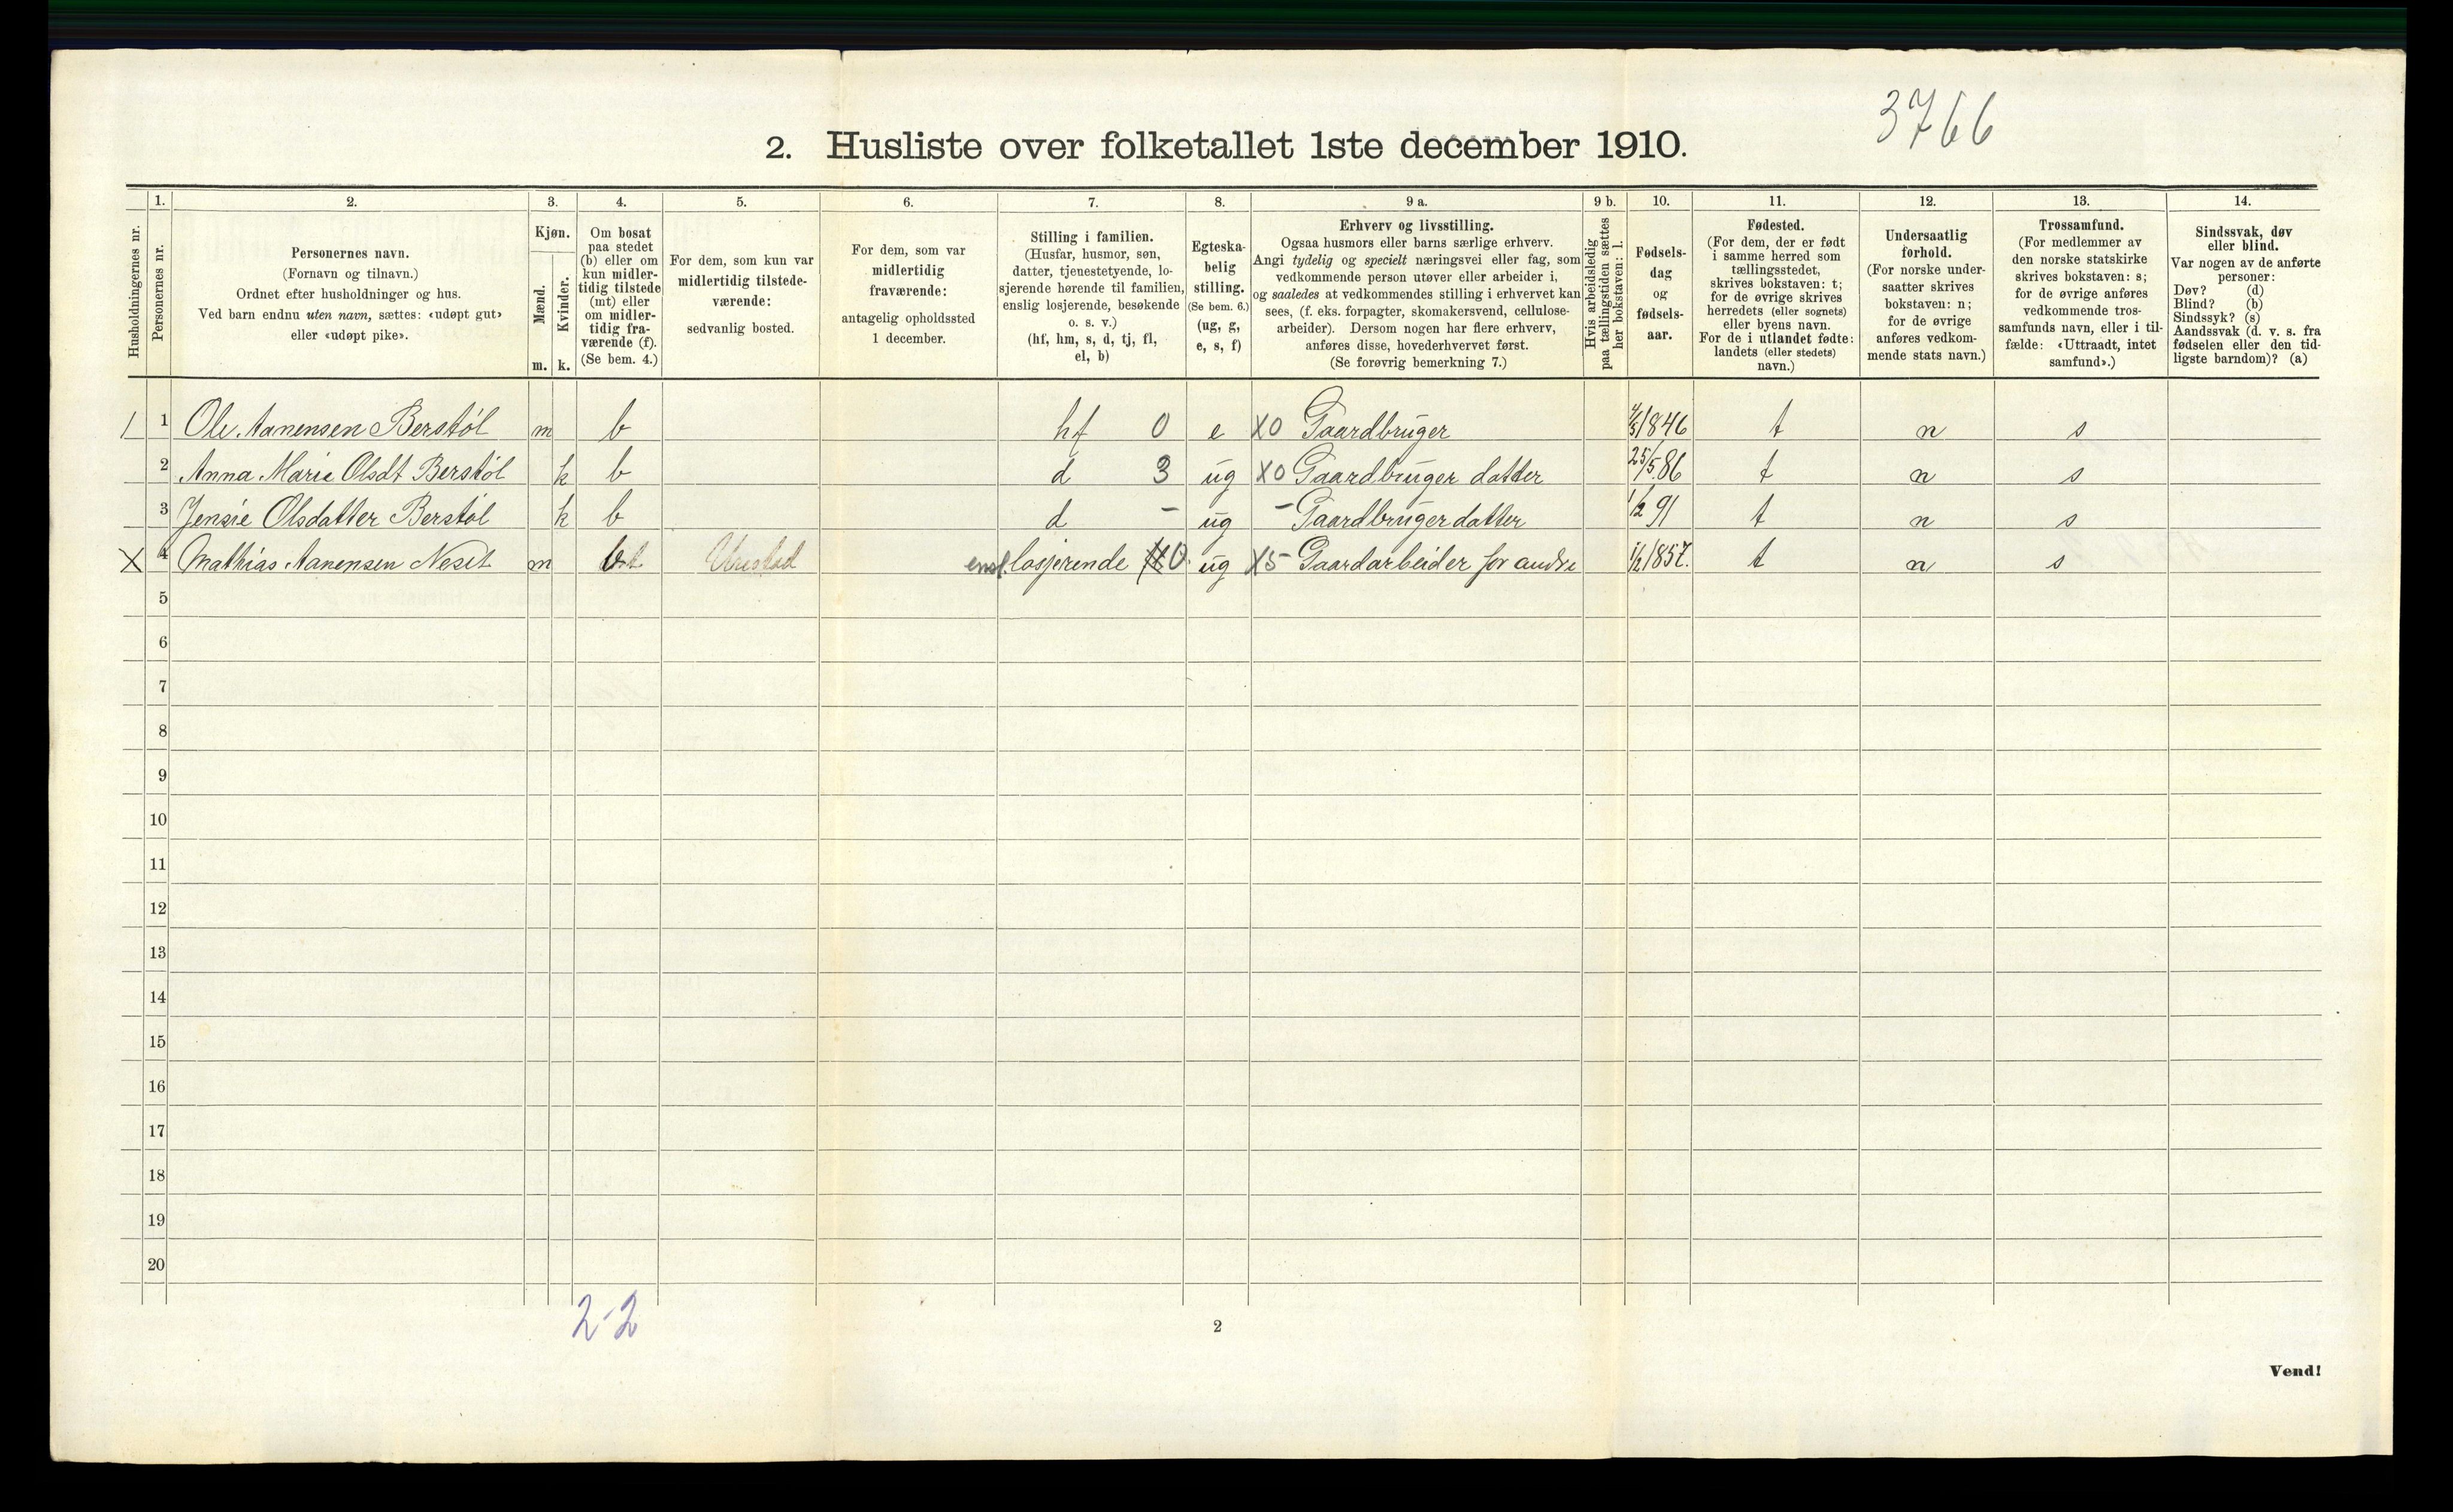 3766
2. Husliste over folketallet 1ste december 1910.
Husholdningernes nr.
1.
Personernes nr.
2.
Personernes navn.
(Fornavn og tilnavn.)
Ordnet efter husholdninger og hus.
Ved barn endnu uten navn, sættes: «udøpt gut»
eller «udøpt pike».
3.
Kjøn.
Mænd.
Kvinder.
m. k.
4.
Om bosat
paa stedet
(b) eller om
kun midler-
tidig tilstede
(mt) eller
om midler-
tidig fra-
værende (f).
(Se bem. 4.)
5.
For dem, som kun var
midlertidig tilstede-
værende:
sedvanlig bosted.
6.
For dem, som var
midlertidig
fraværende:
antagelig opholdssted
1 december.
7.
Stilling i familien.
(Husfar, husmor, søn,
datter, tjenestetyende, lo-
sjerende hørende til familien,
enslig losjerende, besøkende
o. s. v.)
(hf, hm, s, d, tj, fl,
el, b)
8.
Egteska-
belig
stilling.
(Se bem. 6.)
(ug, g,
e, s, f)
9 a.
Erhverv og livsstilling.
Ogsaa husmors eller barns særlige erhverv.
Angi tydelig og specielt næringsvei eller fag, som
vedkommende person utøver eller arbeider i,
og saaledes at vedkommendes stilling i erhvervet kan
sees, (f. eks. forpagter, skomakersvend, cellulose-
arbeider). Dersom nogen har flere erhverv,
anføres disse, hovederhvervet først.
(Se forøvrig bemerkning 7.)
9 b.
Hvis arbeidsledig
paa tællingstiden sættes
her bokstaven: l.
10.
Fødsels-
dag
og
fødsels-
aar.
11.
Fødested.
(For dem, der er født
i samme herred som
tællingsstedet,
skrives bokstaven: t;
for de øvrige skrives
herredets (eller sognets)
eller byens navn.
For de i utlandet fødte:
landets (eller stedets)
navn.)
12.
Undersaatlig
forhold.
(For norske under-
saatter skrives
bokstaven: n;
for de øvrige
anføres vedkom-
mende stats navn.)
13.
Trossamfund.
(For medlemmer av
den norske statskirke
skrives bokstaven: s;
for de øvrige anføres
vedkommende tros-
samfunds navn, eller i til-
fælde: «Uttraadt, intet
samfund».)
14.
Sindssvak, døv
eller blind.
Var nogen av de anførte
personer:
Døv? (d)
Blind? (b)
Sindssyk? (s)
Aandssvak (d. v. s. fra
fødselen eller den tid-
ligste barndom)? (a)
1 Ole Aanensen Berstøl m b hf 0 e X0 Gaardbruger 4/5 1846 t n s
2 Anna Marie Olsdt Berstøl k b d 3 ug X0 Gaardbruger datter 25/5 86 t n s
3 Jensie Olsdatter Berstøl k b d - ug - Gaardbruger datter 1/2 91 t n s
X 4 Mathias Aanensen Neset m b ensl. losjerende 0 ug X5 Gaardarbeider for andre 1/2 1857. t n s
5
6
7
8
9
10
11
12
13
14
15
16
17
18
19
20
2-2
2
Vend!